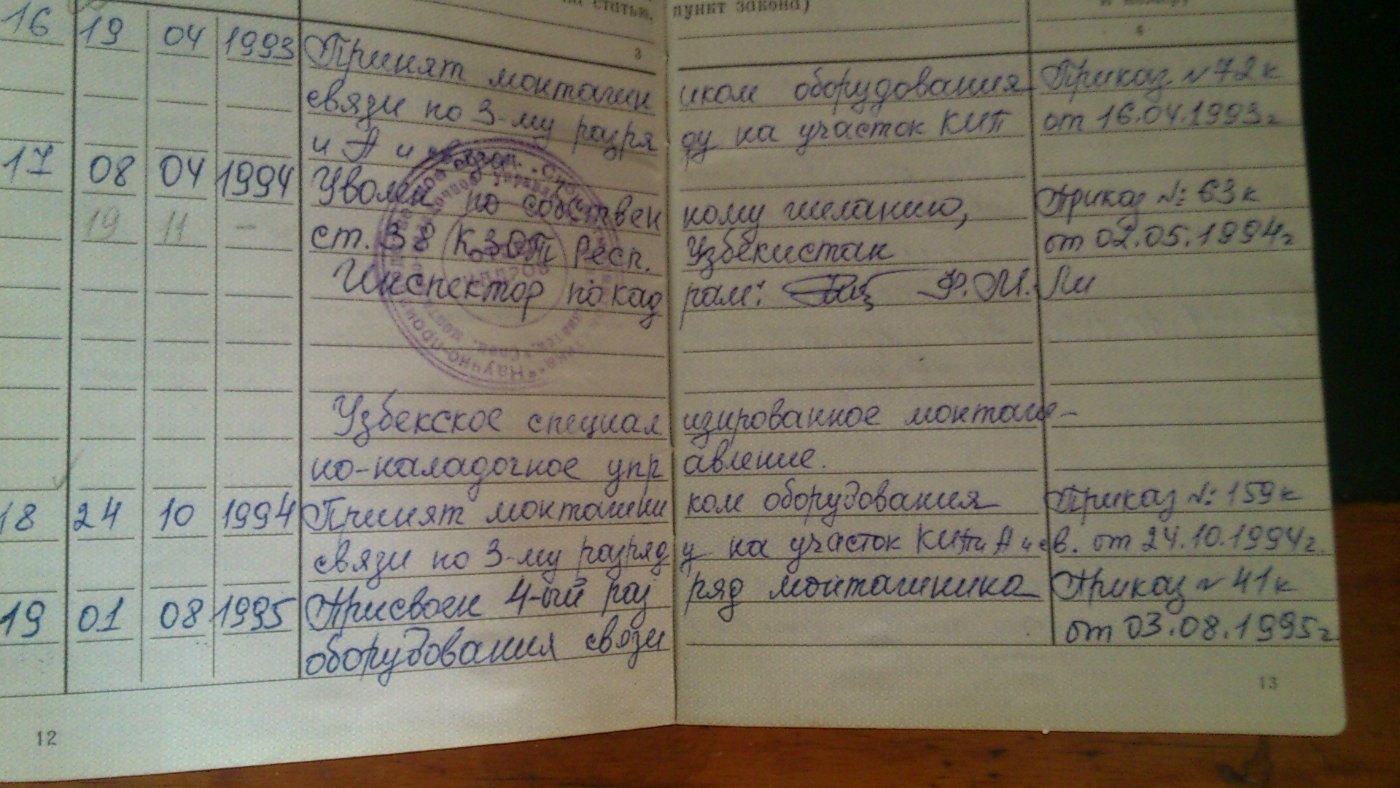 статью, пункт закона)
3 4
16 19 04 1993 Принят монтажником оборудования Приказ № 72к
связи по 3-му разряду на участок КИП от 16.04.1993г
и А и связи.
17 08 04 1994 Уволен по собственному желанию, Приказ № 63к
19 11 – ст. 38 КЗОТ Респ. Узбекистан от 02.05.1994г
Инспектор по кадрам: Ф.М. Ли
Узбекское специализированное монтаж-
но-наладочное управление.
18 24 10 1994 Принят монтажником оборудования Приказ № 159к
связи по 3-му разряду на участок КИП и А и св. от 24.10.1994г.
19 01 08 1995 Присвоен 4-ый разряд монтажника Приказ № 41к
оборудования связи от 03.08.1995г
12 13